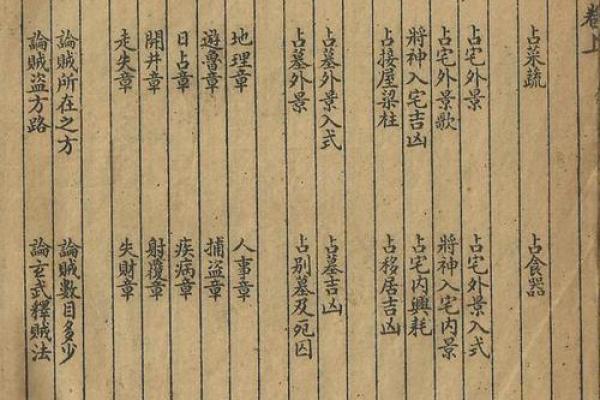 卷上
占菜蔬 占食器
占宅外景 占宅外景入式
占宅外景歌 將神入宅內景
將神入宅吉凶 占宅內興耗
占接屋梁柱 占移居吉凶
占墓外景入式 占墓吉凶
占墓外景 占别墓及宛囚
地理章 人事章
遊魯章 捕盜章
日占章 疾病章
開井章 射覆章
走失章 失財章
論賊所在之方 論賊數目多少
論賊盜方路 論玄武釋賊法